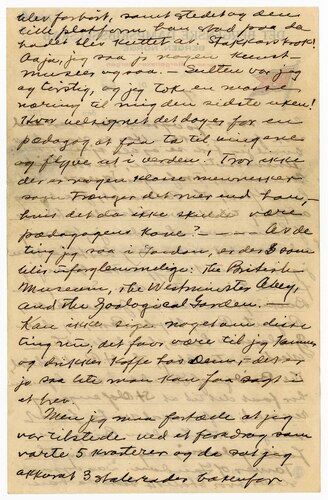 blev forhørt, samt stedet og den
lille platform han stod paa da
hodet blev kuttet af. Stakkars krok!
Aaja, jeg saa jo nogen kunst-
museer ogsaa. — Sulten var jeg
og tørstig, og jeg tok en masse
næring til mig den sidste uken!
Hvor velsignet det da er for en
pædagog at faa ta til vingene
og flyve ut i verden! Tror ikke
der er nogen klasse mennesker
som trænger det mer end han, —
hvis det da ikke skulde være
pædagogens kone? — — Av de
ting jeg saa i London, er der 3 som
blir uforglemmelige: The British
Museum, the Westminster Abey,
and the Zoological Garden. —
Kan ikke sige noget om disse
ting nu, det faar være til jeg kommer
og drikker kaffe hos Dem; — det er
jo saa lite man kan faa sagt i
et brev.
Men jeg maa fortælle at jeg
var tilstede ved et foredrag som
varte 5 kvarterer og da sat jeg
akkurat 3 stolerader bakenfor